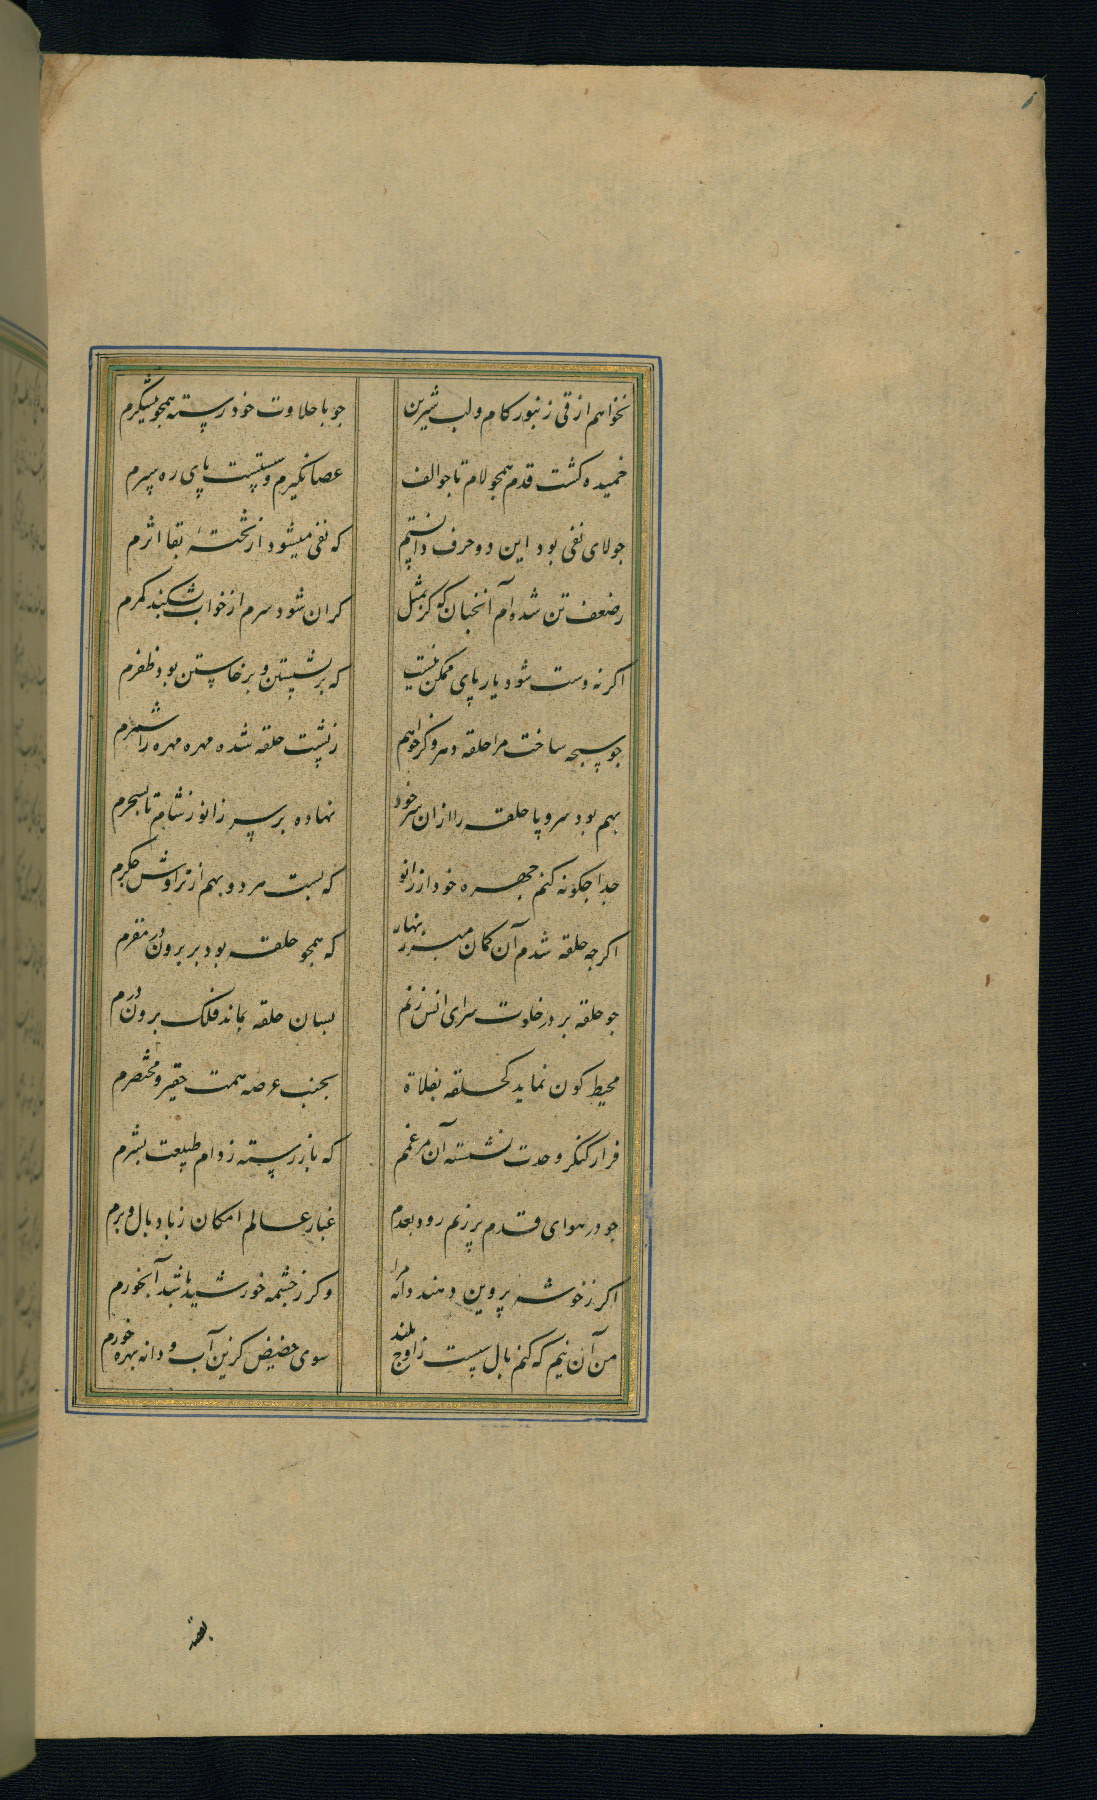 نخواهم از قی زنبور کام و لب شیرین جو با حلاوت خود رسته همچو نیشکرم
خمیده کشت قدم همچو لام تا جو الف عصا نکیرم و سستست پای ره سپرم
جو لای نفی بود این دو حرف دانستم که نفی میشود از تخته بقا اثرم
ز ضعف تن شده ام آنچنان که کر بمثل کران شود سرم از خواب بشکند کمرم
اکر نه دست شود یار پای ممکن نیست که بر نشستن و برخاستن بود ظفرم
جو سبحه ساخت مرا حلقه دهر و کر خواهم ز پشت حلقه شده مهره مهره را شمرم
بهم بود سر و پا حلقه را ازان سر خود نهاده بر سر زانو ز شام تا سحرم
جدا جکونه کنم جهره خود از زانو که بست هر دو بهم از تراوش جکرم
اکرجه حلقه شدم آن کمان مبر زنهار که همجو حلقه بود بر برون در مقرم
جو حلقه بر در خلوت سرای انس زنم بسان حلقه بماند فلک برون درم
محیط کون نماید کحلقه بفلاة بجنب عرصه همت حقیر و مختصرم
فراز کنکر وحدت نشسته آن مرغم که باز رسته ز دام طبیعت بشرم
جو در هوای قدم پر زنم رود بعدم غبار عالم امکان ز باد بال و برم
اکر ز خوشه پروین دهند دانه مرا وکر ز جشمه خورشید باشد آبخورم
من آن نیم که کنم بال سست ز اوج بلند سوی حضیض کزین آب و دانه بهره خورم